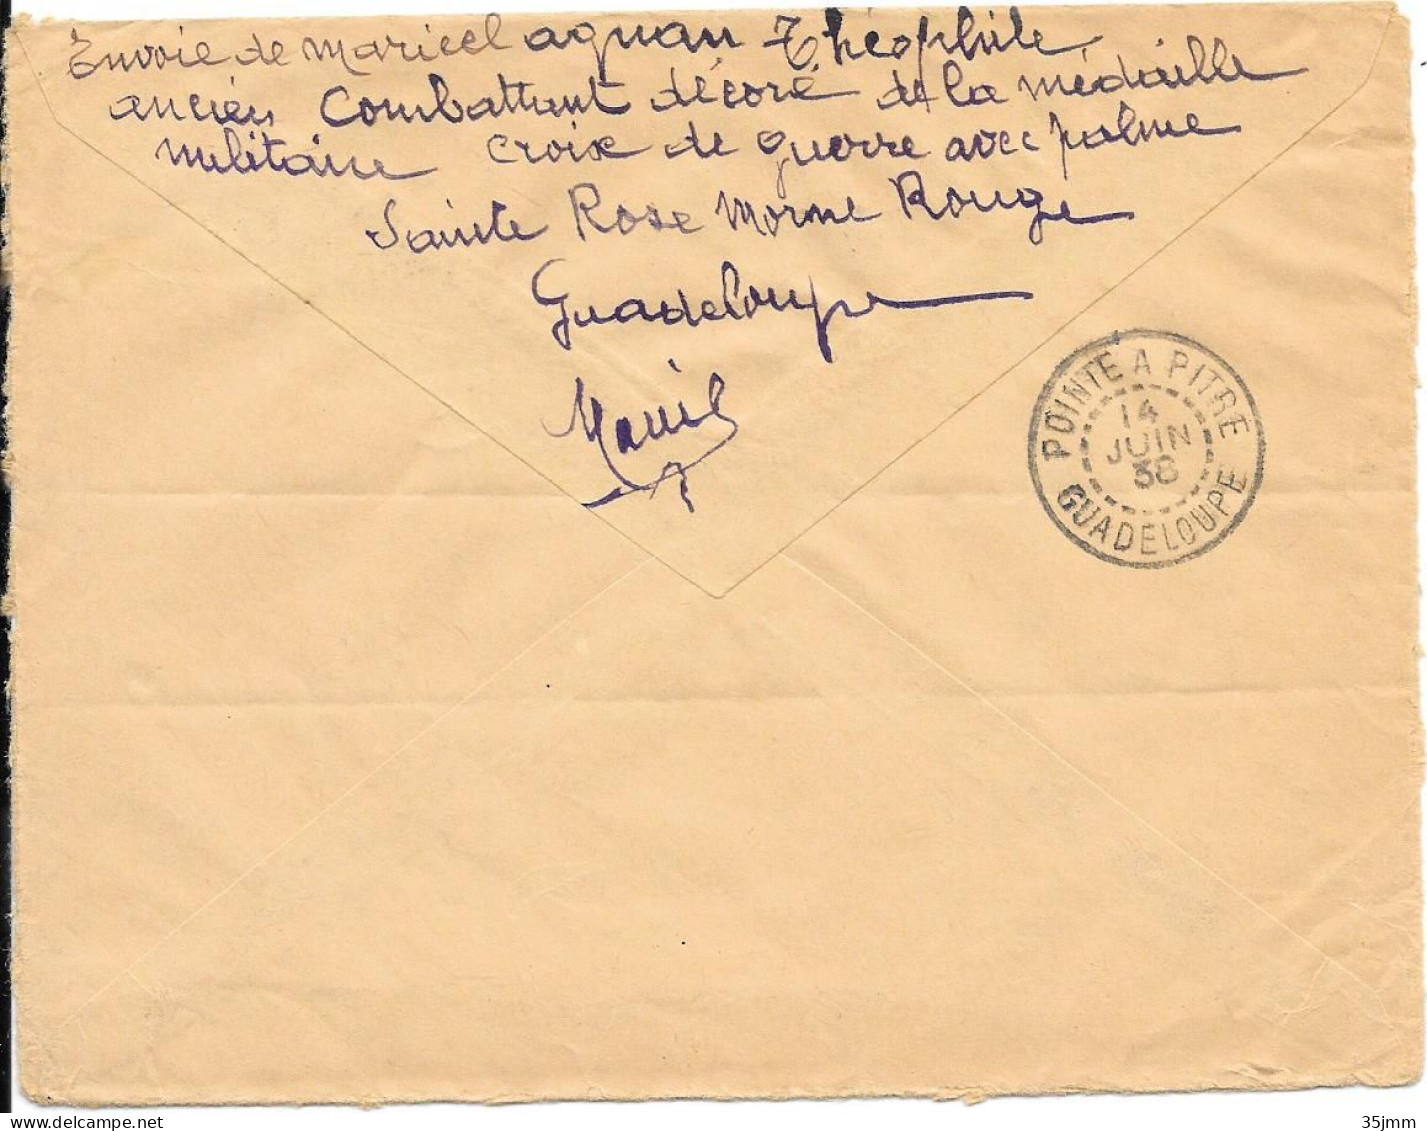 Envoie de Mariecl aguan Théophile
ancien Combattant décoré de la médaille
militaire croix de guerre avec palme
Sainte Rose Morne Rouge
Guadeloupe
POINTE A PITRE
14
JUIN
38
GUADELOUPE
delcampe.net
35jmm